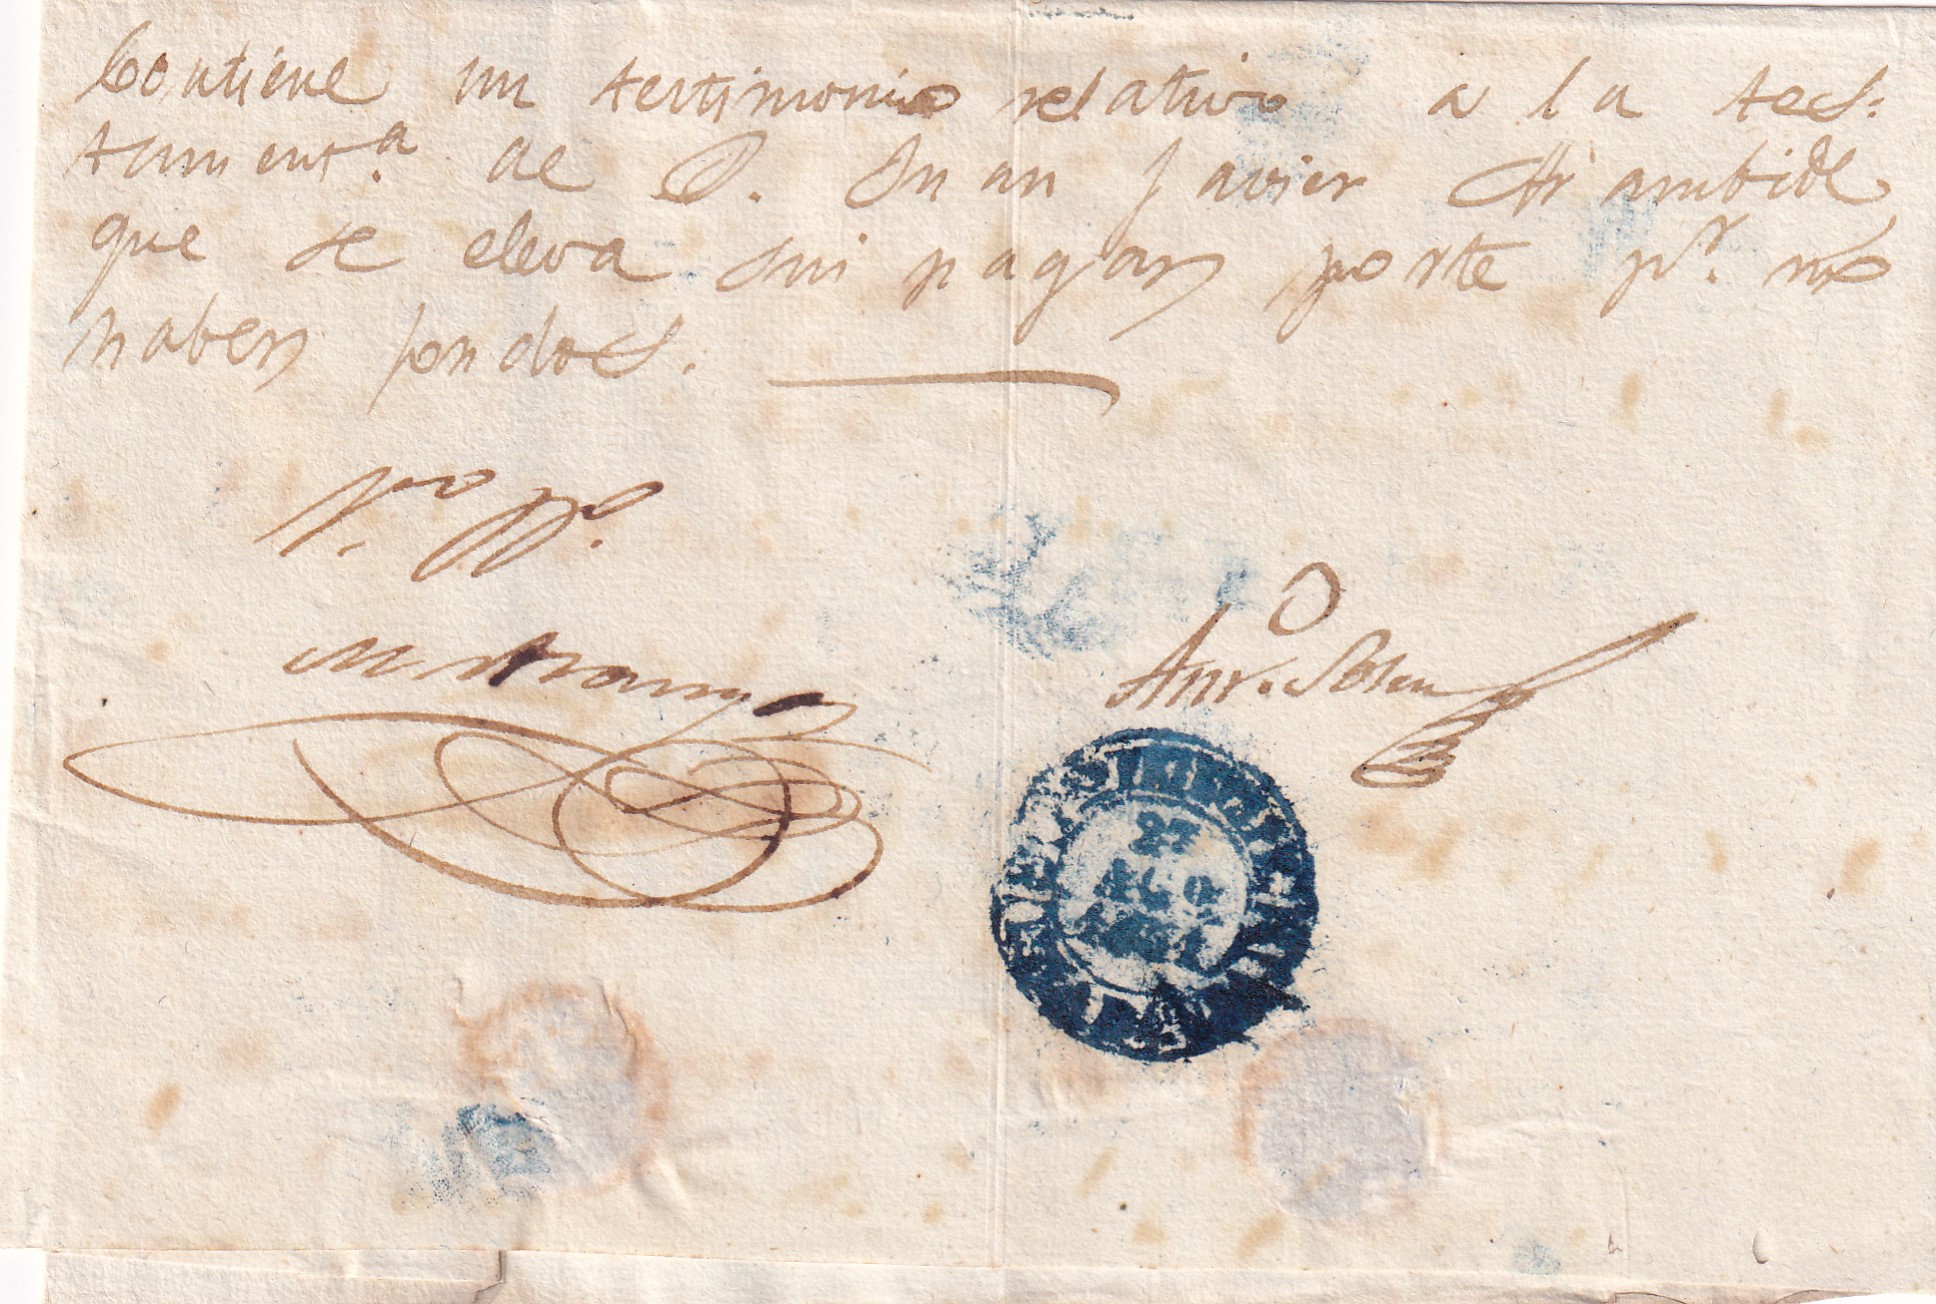 Contiene un testimonio relativo a la tes-
tament.ª de D. Juan Javier Arambide
que se eleva sin pagar porte p.r no
haber fondos.
V.o
Ant.o
27
AGO